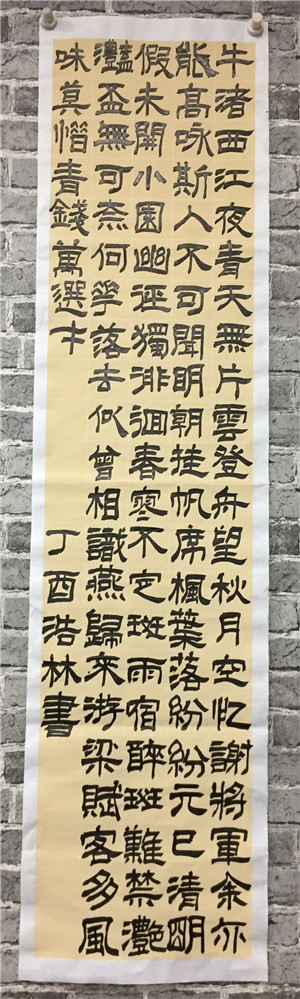 牛渚西江夜青天無片雲登舟望秋月空忆謝將軍余亦
能高咏斯人不可聞明朝挂帆席楓葉落紛紛元巳清明
假未開小園幽徑獨徘徊春寒不定斑雨宿醉斑難禁灔
灩盃無可奈何華落去似曾相識燕歸來游梁賦客多風
味莫惜青錢萬選才
丁酉浩林書